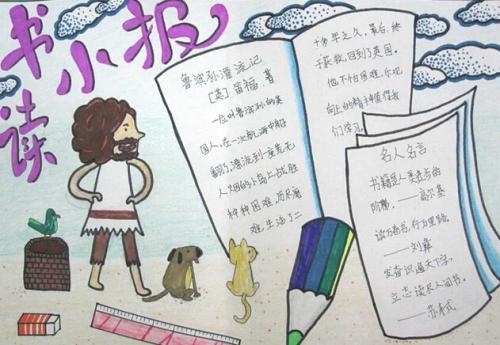 读书小报
鲁滨孙漂流记
[英]笛福 著
一位叫鲁滨孙的英
国人,在一次航海中船
翻了,漂流到一座荒无
人烟的小岛上,战胜
种种困难,尽磨
难,生活了二
十年之久,最后,终
于获救,回到了英国。
他不怕困难,乐观
向上的精神值得我
们学习。
名人名言
书籍是人类进步的
阶梯。——高尔基
读万卷书,行万里路。
——刘彝
发奋识遍天下字,
立志读尽人间书。
——苏轼